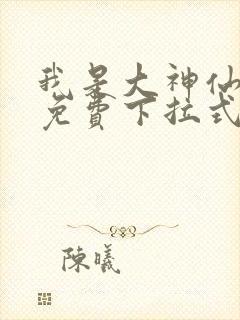 我是大神仙
免費下拉式
陳曦